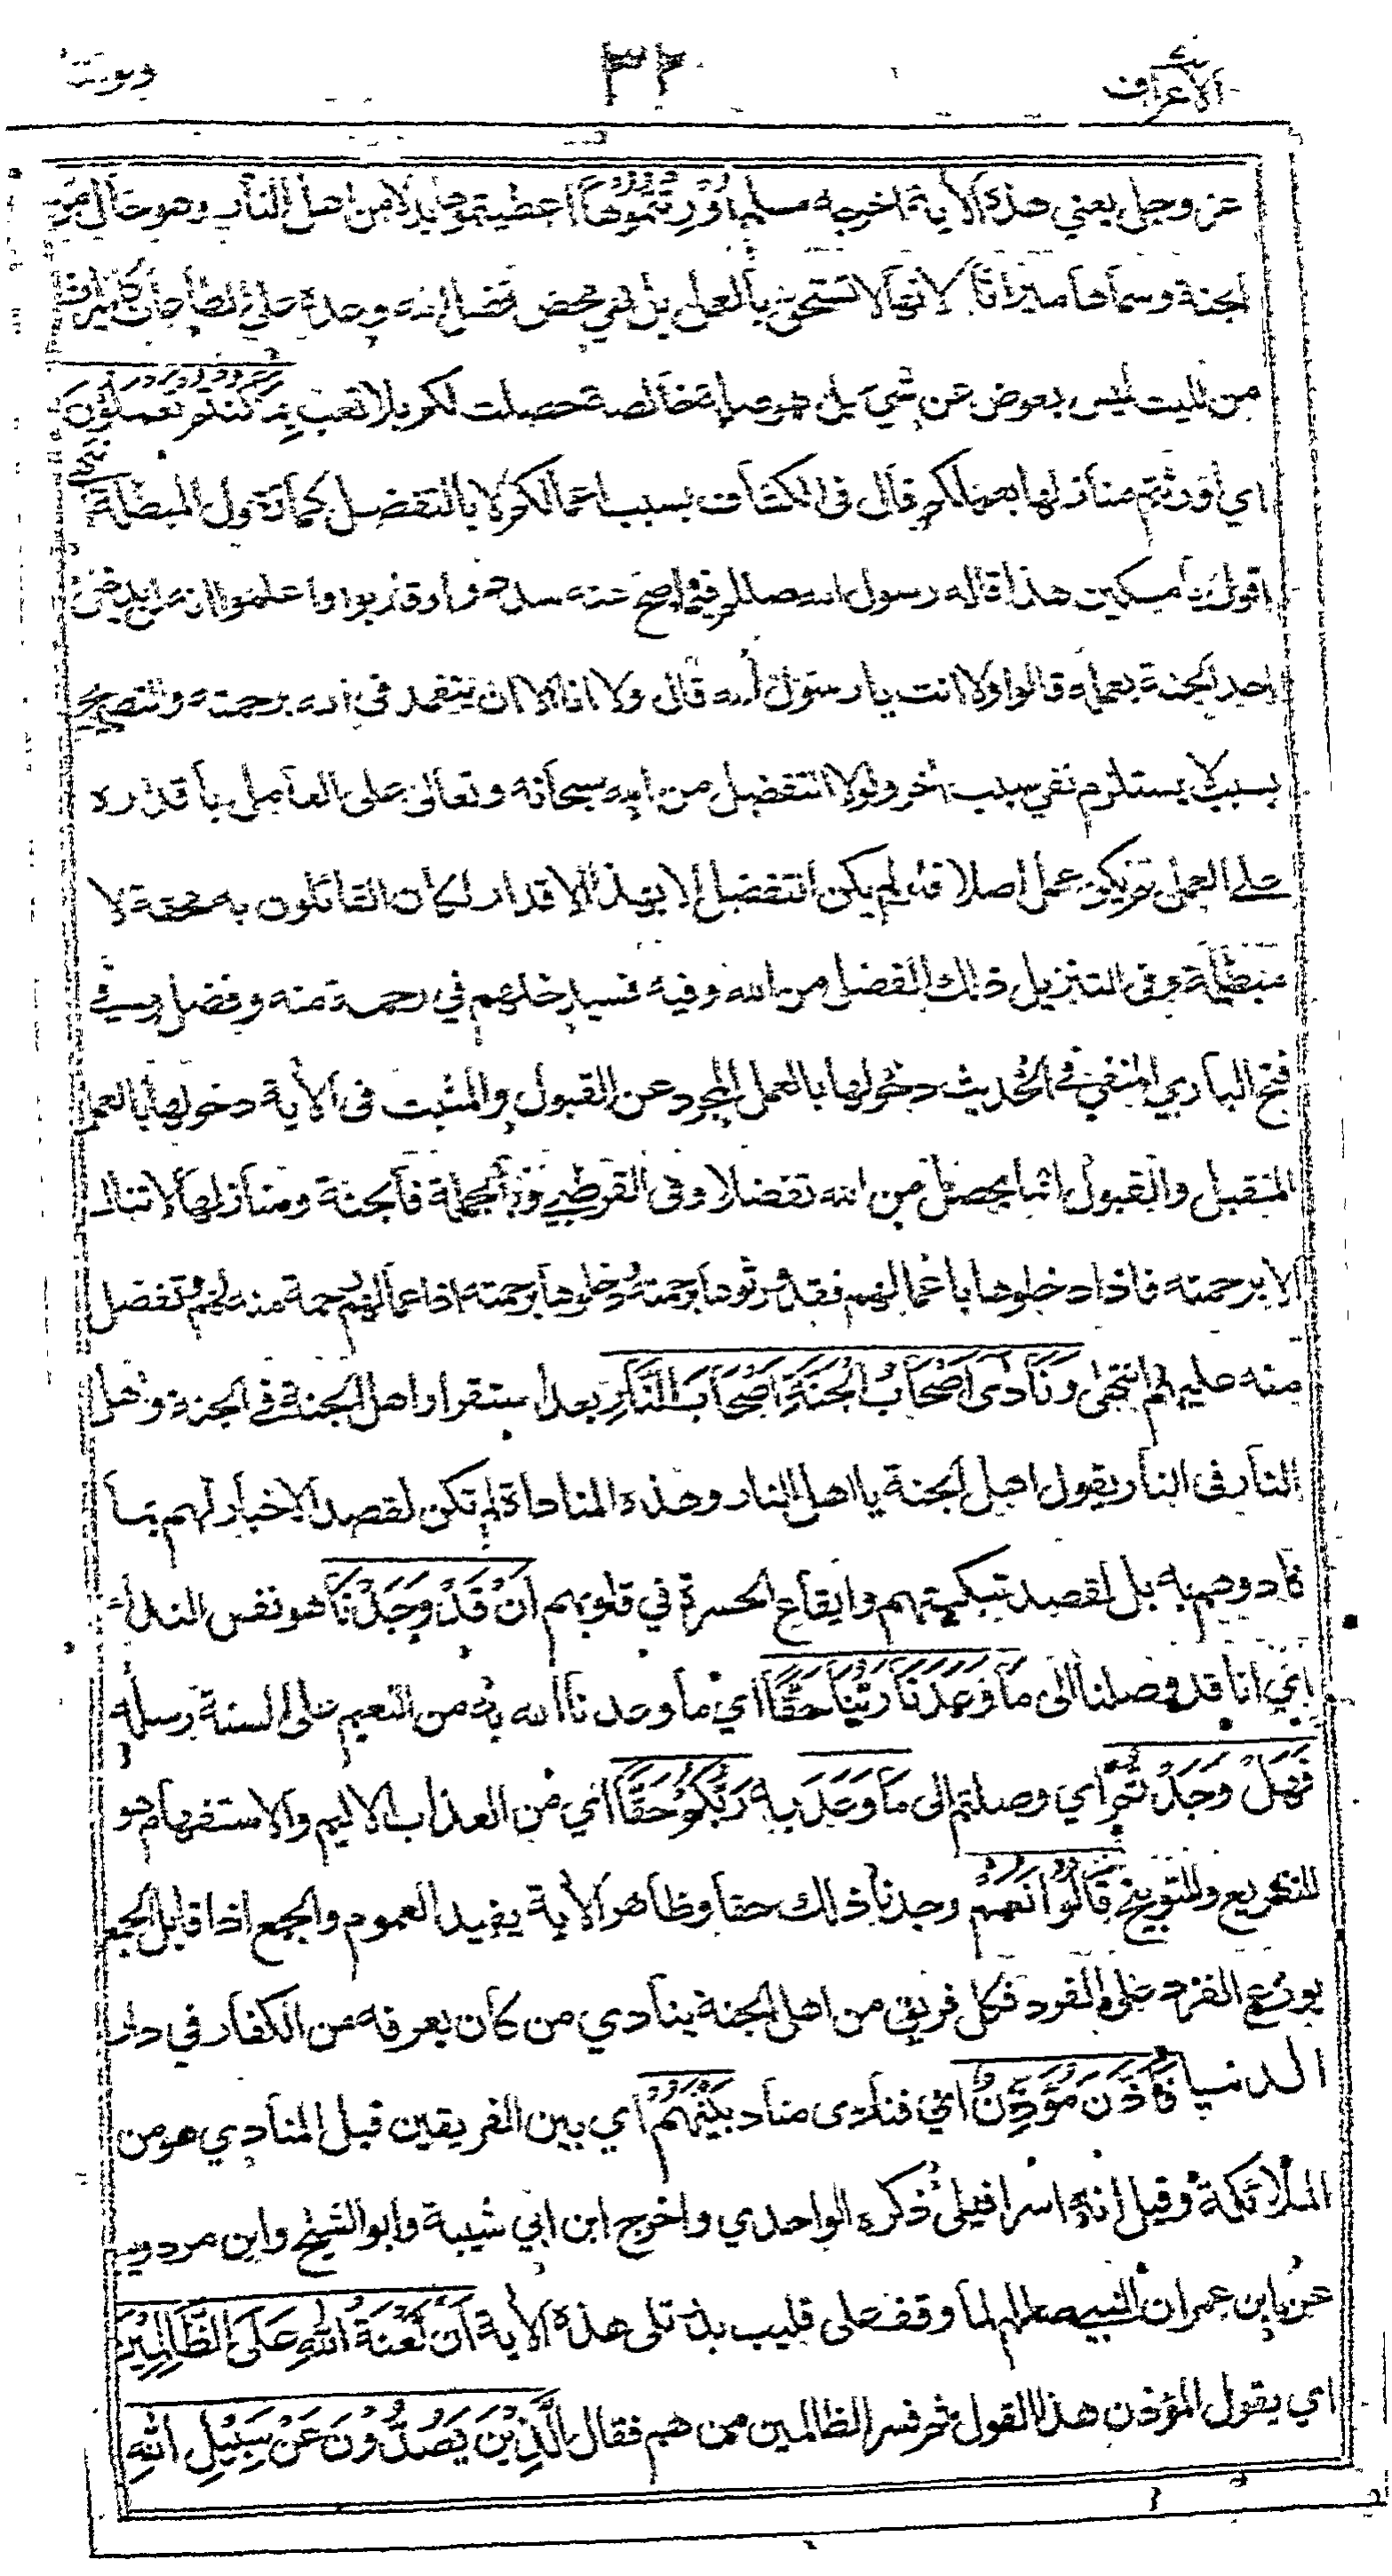 الأعراف ٣٢ ولوأننا
عز وجل يعني هذه الأية مما خرجه مسلم أُوْرِثْتُمُوْهَا اعطيتموها بدلا من اهل النار وهو حال من
الجنة وسماها ميراثا لانها لا تستحق بالعمل بل هي محض فضل الله وعده على الطاعات كالميراث
من الميت ليس بعوض عن شيء بل هو صلة خالصة حصلت لكم بلا تعب بِمَا كُنْتُمْ تَعْمَلُوْنَ
اي اورثتم منازلها بعملكم قال في الكشاف بسبب اعمالكم لا بالتفضل كما تقول المبطلة
اقول يا مسكين هذا قاله رسول الله صللم فيما صح عنه سددوا وقاربوا واعلموا انه لن يدخل
احد الجنة بعمله قالوا ولا انت يا رسول الله قال ولا انا الا ان يتغمدني الله برحمته والتصريح
بسبب لا يستلزم نفي سبب اخر ولولا التفضل من الله سبحانه وتعالى على العامل باقداره
على العمل لم يكن عمل اصلا فلو لم يكن التفضل الا بهذا الاقدار لكان القائلون به محقة لا
مبطلة وفى التنزيل ذلك الفضل من الله وفيه فسيدخلهم في رحمة منه وفضل وفي
فتح الباري المنفي في الحديث دخولها بالعمل المجرد عن القبول والمثبت فى الأية دخولها بالعمل
المتقبل والقبول انما يحصل من الله تفضلا وفى القرطبي وبالجملة فالجنة ومنازلها لا تنال
الا برحمته فاذا دخلوها باعمالهم فقد ورثوها برحمته ودخلوها برحمته اذ اعمالهم رحمة منه لهم وتفضل
منه عليهم انتهى وَنَادَى أَصْحَابُ الْجَنَّةِ أَصْحَابَ النَّارِ بعد استقرار اهل الجنة في الجنة واهل
النار فى النار يقول اهل الجنة يا اهل النار وهذه المناداة لم تكن لقصد الاخبار لهم بما
نادوهم به بل لقصد تبكيتهم وايقاع الحسرة في قلوبهم أَنْ قَدْ وَجَدْنَا هو نفس النداء
اي انا قد وصلنا الى مَا وَعَدَنَا رَبُّنَا حَقًّا اي ما وعدنا الله به من النعيم على السنة رسله
فَهَلْ وَجَدْتُّمْ اي وصلتم الى مَا وَعَدَ به رَبُّكُمْ حَقًّا اي من العذاب الاليم والاستفهام هو
للتقريع والتوبيخ قَالُوْا نَعَمْ وجدنا ذلك حقا وظاهر الأية يفيد العموم والجمع اذا قابل الجمع
يوزع الفرد على الفرد فكل فريق من اهل الجنة ينادي من كان يعرفه من الكفار في دار
الدنيا فَأَذَّنَ مُؤَذِّنٌ اي فنادى مناد بَيْنَهُمْ اي بين الفريقين قيل المنادي هو من
الملائكة وقيل انه اسرافيل ذكره الواحدي واخرج ابن ابي شيبة وابو الشيخ وابن مردويه
عن ابن عمر ان النبي صللم لما وقف على قليب بدر تلى هذه الأية أَنْ لَّعْنَةُ اللهِ عَلَى الظَّالِمِيْنَ
اي يقول المؤذن هذا القول ثم فسر الظالمين ممن هم فقال الَّذِيْنَ يَصُدُّوْنَ عَنْ سَبِيْلِ اللهِ